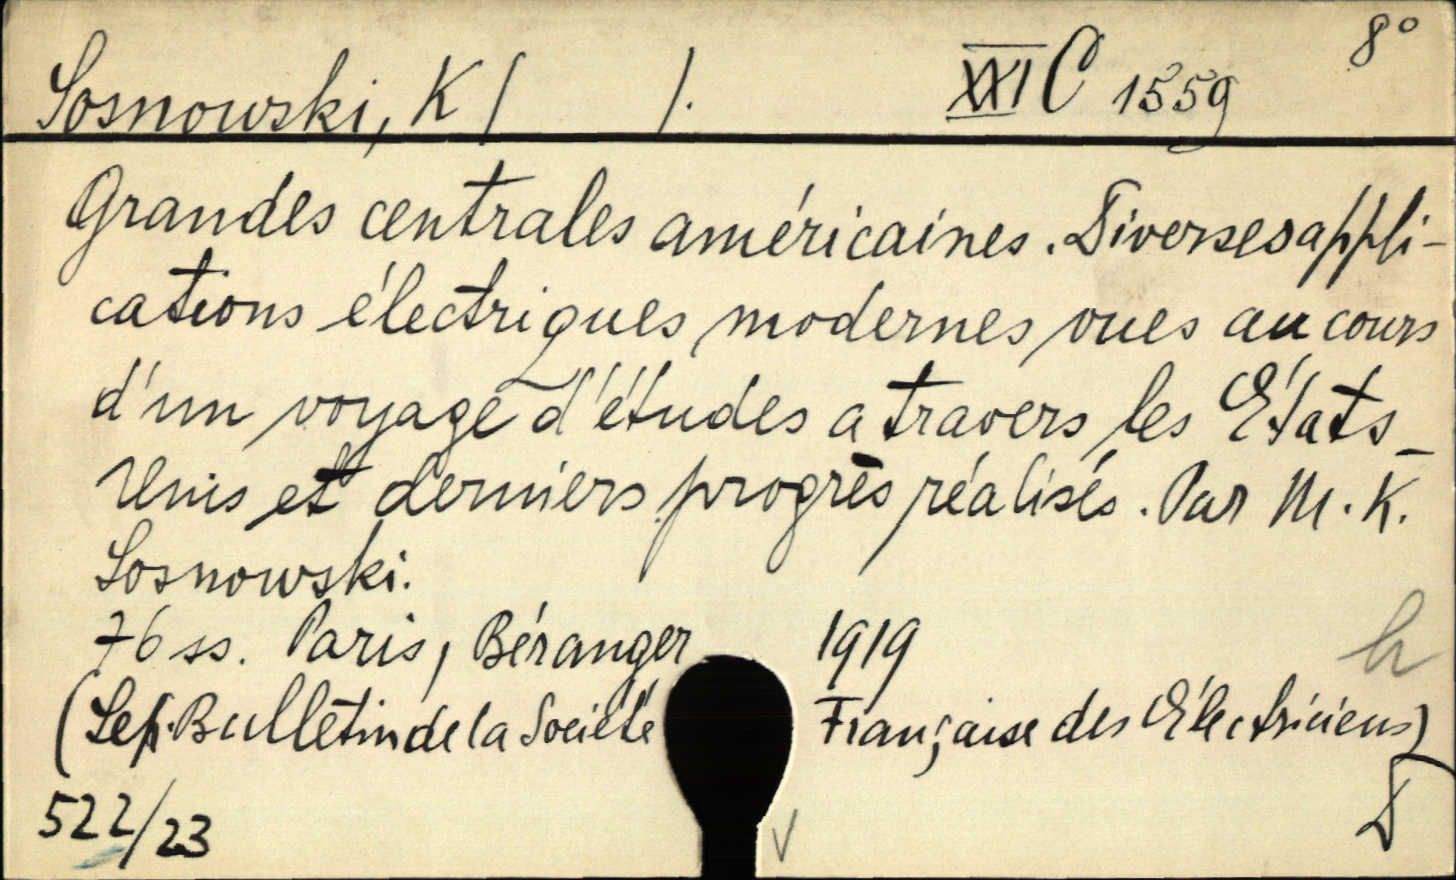 8°
Sosnowski, K ( ). XXI C 1559
Grandes centrales américaines. Diverses appli-
cations électriques modernes vues au cours
d'un voyage d'études a travers les États-
Unis et derniers progrès réalisés. Par M. K.
Sosnowski.
76 ss. Paris, Béranger 1919
h
(Sep. Bulletin de la Société Française des Électriciens)
522/23
D